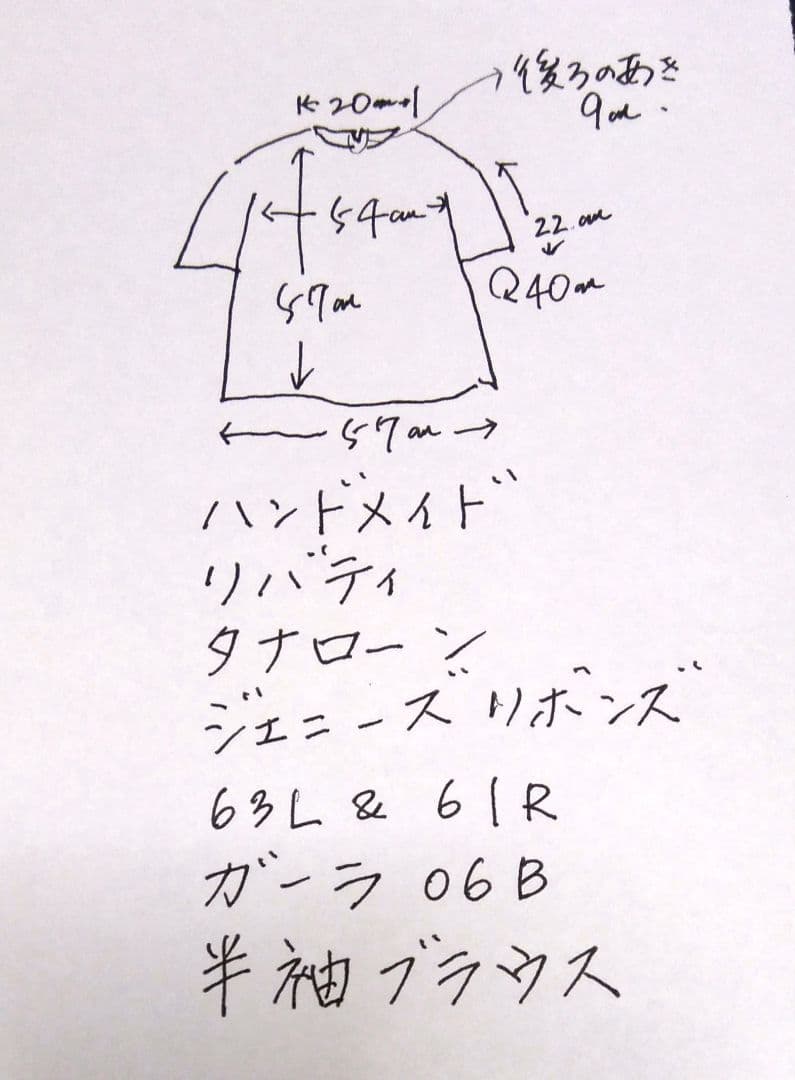 後ろのあき
9cm.
20cm
54cm
22.cm
40cm
57cm
57cm
ハンドメイド
リバティ
タナローン
ジェニーズ リボンズ
63L & 61R
ガーラ 06B
半袖ブラウス